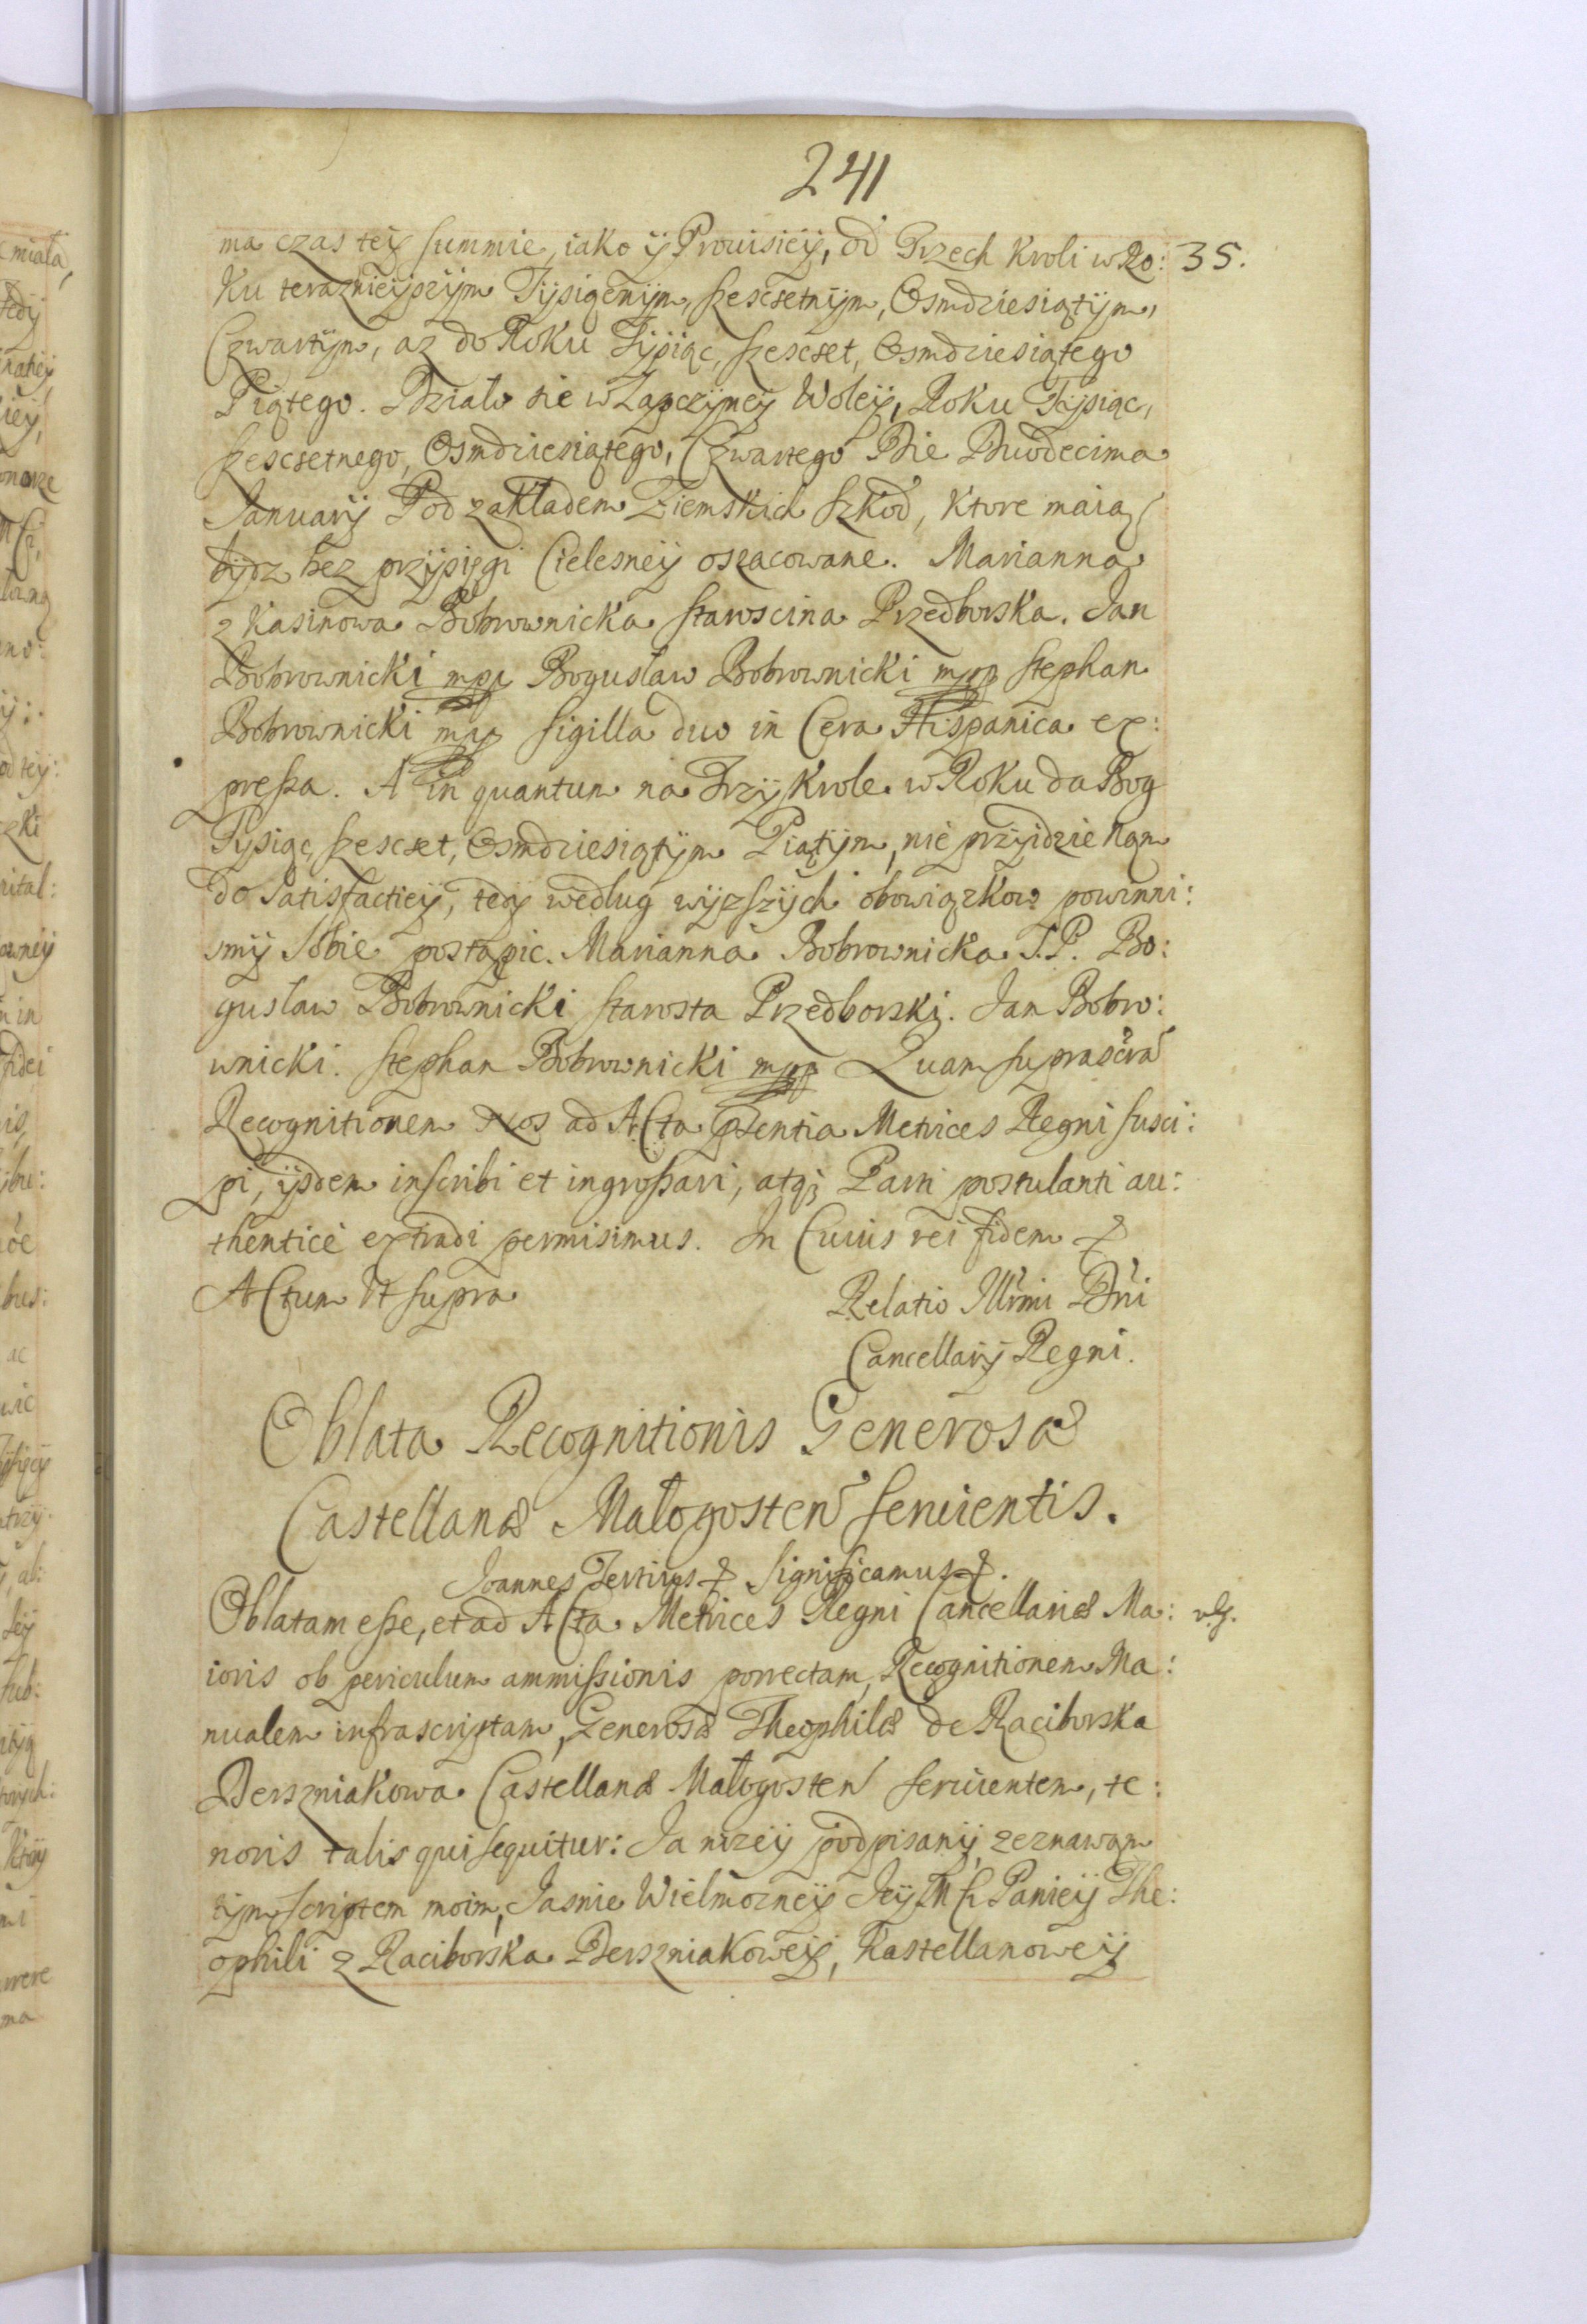 241
ma czas teÿ summie, iako ÿ Prouisieÿ, od Trzech Kroli w Ro: 35.
ku teraznieÿszÿm Tÿsiącnÿm, szescsetnÿm, Osmdziesiątÿm,
Czwartÿm, az do Roku Tÿsiąc, szescset, Osmdziesiątego
Piątego. Działo sie w Zapczÿneÿ Woleÿ, Roku Tÿsiąc,
szescsetnego, Osmdziesiątego, Czwartego Die Duodecima
Januarÿ Pod zakładem Ziemskich szkod, ktore maią
bÿdz bez przÿsięgi Cielesneÿ oszacowane. Marianna
z Kasinowa Bobrownicka staroscina Przedborska. Jan
Bobrownicki mpp Bogusław Bobrownicki mpp Stephan
Bobrownicki mpp sigilla duo in Cera Hispanica ex:
pressa. A in quantum na Trzÿ Krole w Roku da Bog
Tÿsiąc szescset, Osmdziesiątÿm Piątÿm, nie przÿidzie nąm
do satisfactieÿ, tedÿ według wÿzszÿch obowiązkow powinni:
smÿ sobie postąpic. Marianna Bobrownicka S.P. Bo:
gusław Bobrownicki starosta Przedborski. Jan Bobro:
wnicki. Stephan Bobrownicki mpp Quam suprascra
Recognitionem Nos ad Acta pſentia Metrices Regni susci:
pi, ÿsdem inscribi et ingrossari, atq; Parti postulanti au:
thenticè extradi permisimus. In Cuius rei fidem &
Actum ut supra
Relatio Illrmi Dni
Cancellarÿ Regni.
Oblata Recognitionis Generosæ
Castellanæ Małogosten seruientis.
Joannes Tertius & significamus &.
Oblatam esse, et ad Acta Metrices Regni Cancellariæ Ma:
ioris ob periculum ammissionis porrectam, Recognitionem Ma:
nualem infrascriptam, Generosæ Theophilæ de Raciborska
Derszniakowa Castellanæ Małogosten seruientem, te:
noris talis qui sequitur: Ja nizeÿ podpisanÿ zeznawąm
tÿm scriptem moim, Jasnie Wielmozneÿ JeÿMści Panieÿ The:
ophili z Raciborska Derszniakoweÿ, Kastellanoweÿ